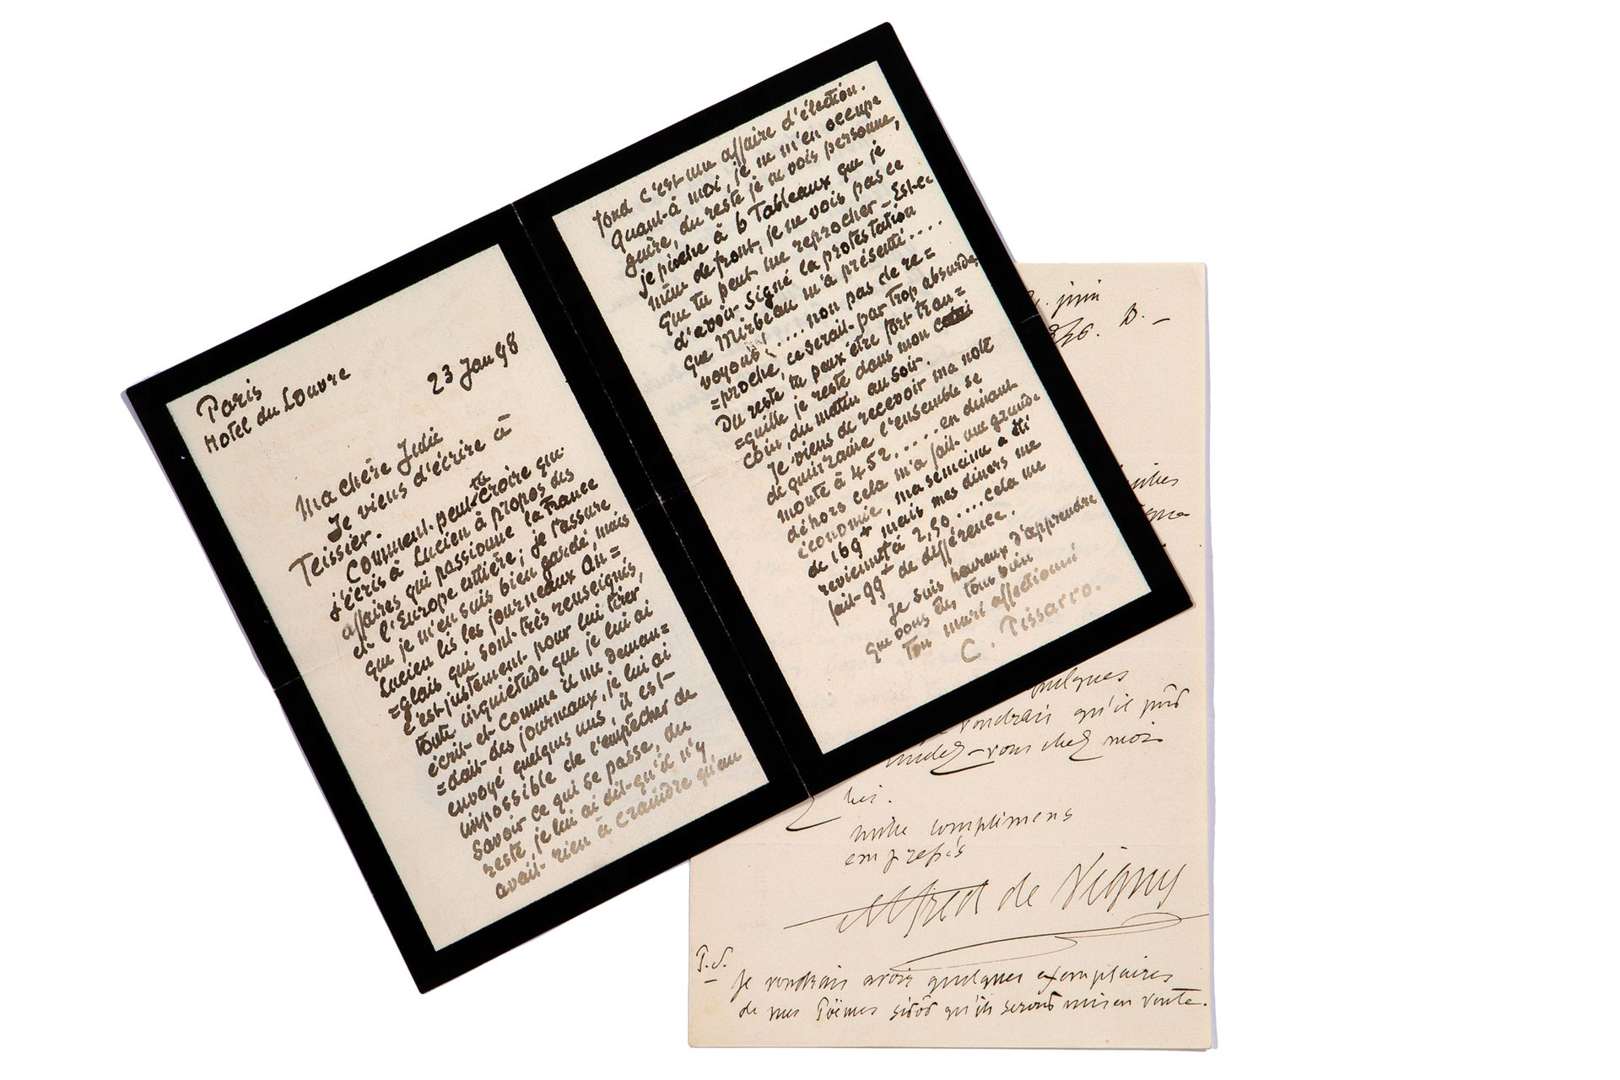 Paris
Hotel du Louvre
23 Jan 98
Ma chère Julie
Je viens d'écrire à
Teissier.
Comment peux tu croire que
j'écris à Lucien à propos des
affaires qui passionne la France
et l'Europe entière; je t'assure
que je m'en suis bien gardé, mais
Lucien lis les journeaux An=
=glais qui sont très renseignés,
c'est justement pour lui tirer
toute inquiétude que je lui ai
écrit et comme il me deman=
=dait des journeaux, je lui ai
envoyé quelques uns, il est
impossible de l'empêcher de
savoir ce qui se passe, du
reste, je lui ai dit qu'il n'y
avait rien à craindre qu'au
fond c'est une affaire d'élection.
Quant à moi, je ne m'en occupe
guère, du reste je ne vois personne,
je pioche à 6 Tableaux que je
mène de front, je ne vois pas ce
que tu peut me reprocher - Est-ce
d'avoir signé la protestation
que Mirbeau m'a présenté....
voyons!.... non pas de re=
=proche, ce serait par trop absurde
Du reste, tu peux être fort tran=
=quille je reste dans mon
coin, du matin au soir.
Je viens de recevoir ma note
de quinzaine l'ensemble se
monte à 452..... en dinant
déhors cela m'a fait une grande
économie, ma semaine a été
de 169 f mais mes diners me
reviennt à 2,50..... cela me
fait 99 f de différence.
Je suis heureux d'apprendre
que vous êtes tous bien
Ton mari affectionné
C. Pissarro.
juin
B. -
quelques
voudrais qu'il pût
rendez-vous chez moi
lui.
mille complimens
empressés
Alfred de Vigny
P.S.
Je voudrais avoir quelques exemplaires
de mes Poëmes sitôt qu'ils seront mis en vente.